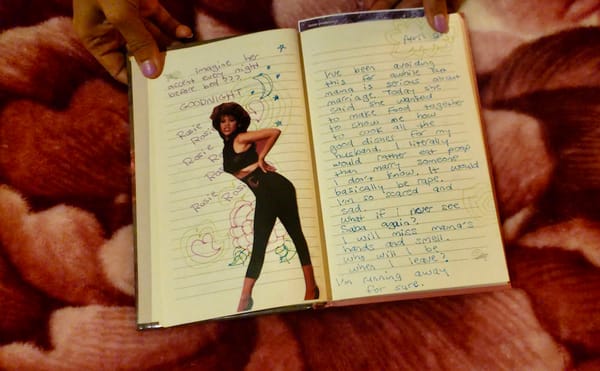 Imagine her
accent every night
before bed???
GOODNIGHT
Rosie
Rosie
Rosie
Rosie
Rosie
Rosie
April
I've been avoiding
this for awhile but
mama is serious about
marriage. Today she
said she wanted
to make food together
to show me how
to cook all the
good dishes for my
husband. I literally
would rather eat poop
than marry someone
I don't know. It would
basically be rape.
I'm so scared and
sad.
what if I never see
Saba again?
I will miss mama's
hands and smell.
Who will I be
when I leave?
I'm running away
for sure.